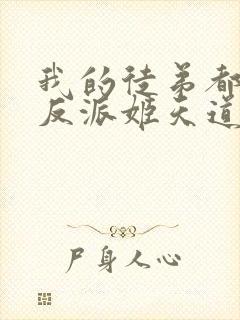 我的徒弟都
反派姬天道
尸身人心